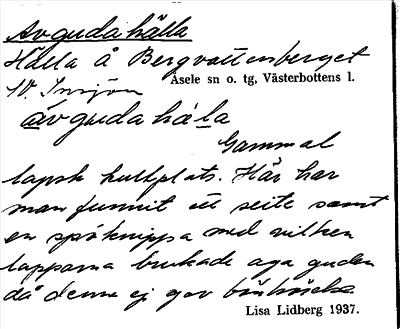 Avgudahälla
Hälla å Bergvattenberget
Åsele sn o. tg, Västerbottens l.
N. Insjön
åvgudahäla
Gammal
lapsk kultplats. Här har
man funnit ett seite samt
en spöknippa med vilken
lapparna brukade aga guden
då denne ej gav bönhörelse
Lisa Lidberg 1937.